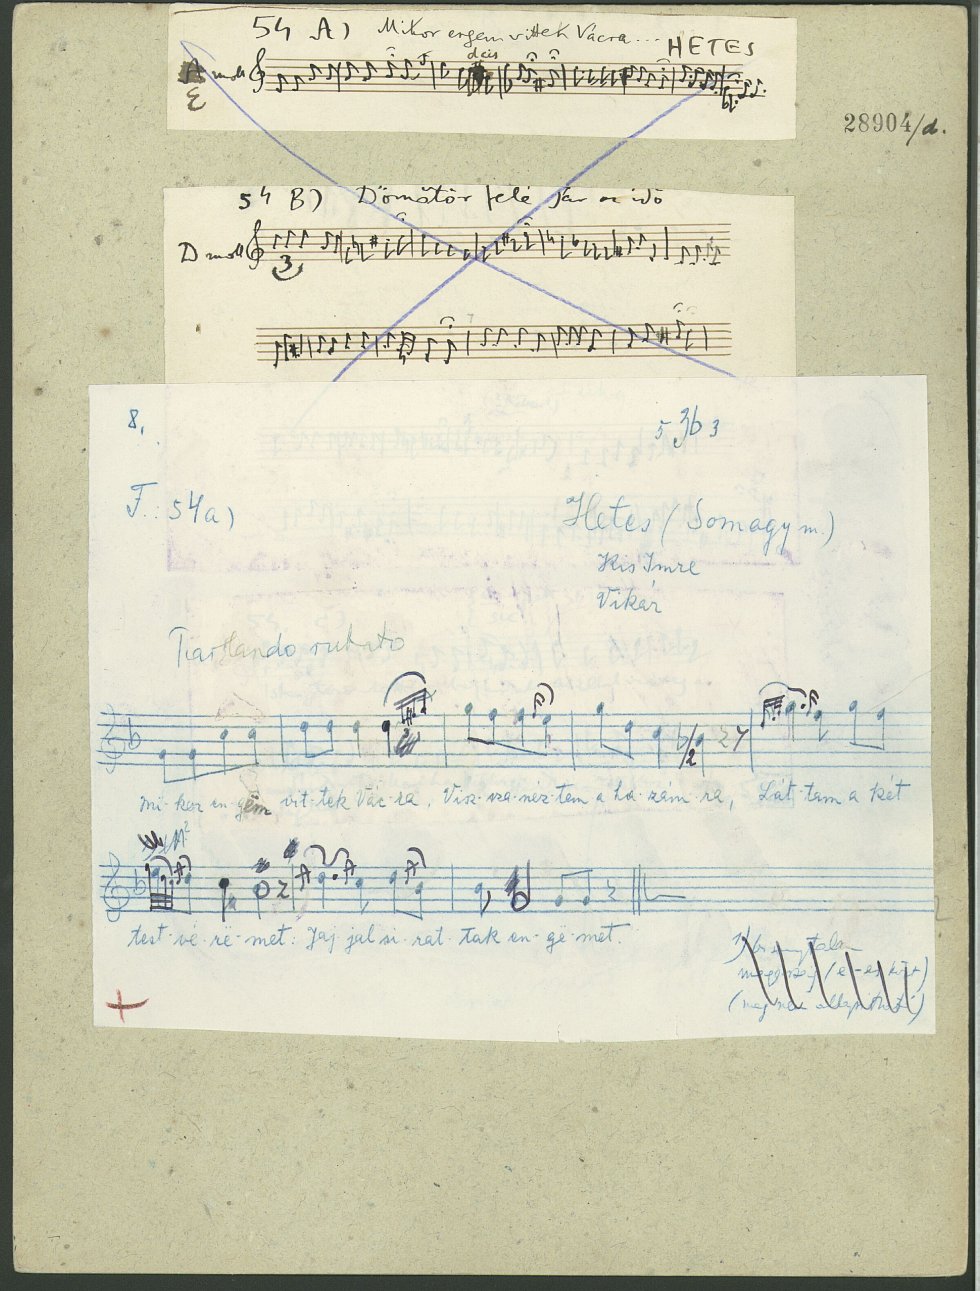 54 A) Mikor engem vittek Vácra... HETES
dcis
A moll
E
28904/d.
54 B) Dömötör felé jár az idő
D moll
3
8.
5 3b 3
F. 54a)
Hetes (Somogy m.)
Kis Imre
Vikár
Parlando rubato
Mi-kor en-gëm vit-tek Vác-ra, Visz-sza-néz-tem a ha-zám-ra, Lát-tam a két
test-vé-rë-met: Jaj jal si-rat-tak en-gë-met.